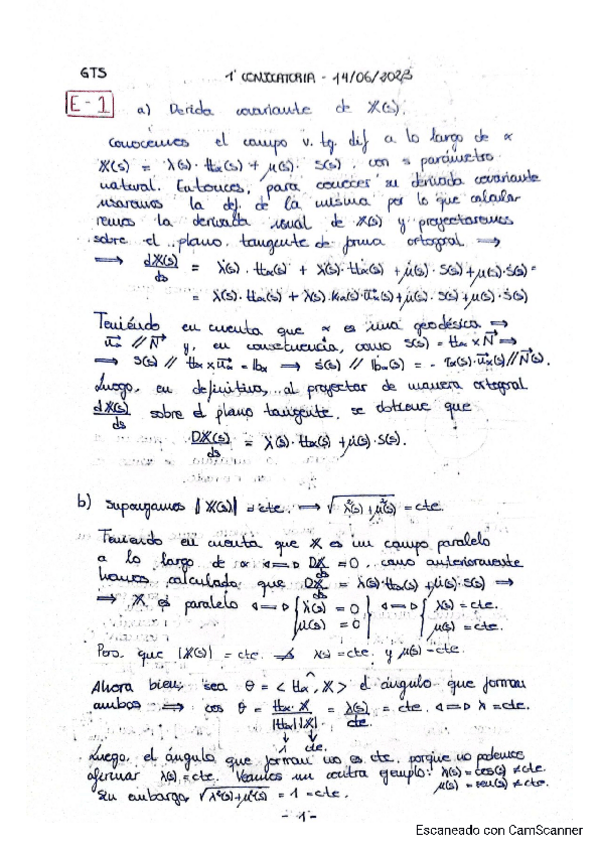 GTS
1ª CONVOCATORIA - 14/06/2023
E-1 a) Derida covariante de X(s).
Conocemos el campo v. tg. dif a lo largo de α
X(s) = λ(s)·tα(s) + μ(s)·S(s), con s parámetro
natural. Entonces, para conocer su derivada covariante
usaremos la def. de la misma por lo que calcular
remos la derivada usual de X(s) y proyectaremos
sobre el plano tangente de forma ortogonal ⟹
⟹ dX(s)/ds = λ̇(s)·tα(s) + λ(s)·ṫα(s) + μ̇(s)·S(s) + μ(s)·Ṡ(s) =
= λ̇(s)·tα(s) + λ(s)·kα(s)·n⃗α(s) + μ̇(s)·S(s) + μ(s)·Ṡ(s)
Teniendo en cuenta que α es una geodésica ⟹
n⃗α // N⃗ y, en consecuencia, como S(s) = tα × N⃗ ⟹
⟹ S(s) // tα × n⃗α = bα ⟹ Ṡ(s) // ḃα(s) = - τα(s)·n⃗α(s) // N⃗(s).
Luego, en definitiva, al proyectar de manera ortogonal
dX(s)/ds sobre el plano tangente, se obtiene que
DX(s)/ds = λ̇(s)·tα(s) + μ̇(s)·S(s).
b) Supongamos |X(s)| = cte. ⟹ √λ²(s)+μ²(s) = cte.
Teniendo en cuenta que X es un campo paralelo
a lo largo de α ⟺ DX/ds = 0, como anteriormente
hemos calculado que DX/ds = λ̇(s)·tα(s) + μ̇(s)·S(s) ⟹
⟹ X es paralelo ⟺ { λ̇(s) = 0 } ⟺ { λ(s) = cte.
μ̇(s) = 0 μ(s) = cte.
Pero que |X(s)| = cte. ⇏ λ(s) = cte. y μ(s) = cte.
Ahora bien, sea θ = < tα, X > el ángulo que forman
ambos ⟹ cos θ = tα·X / |tα||X| = λ(s)/cte. = cte. ⟺ λ = cte.
↓ ↓
1 cte.
Luego, el ángulo que forman no es cte. porque no podemos
afirmar λ(s) = cte. Veamos un contra ejemplo: λ(s) = cos(s) ≠ cte.
μ(s) = sen(s) ≠ cte.
Sin embargo, √λ²(s)+μ²(s) = 1 = cte.
- 1 -
Escaneado con CamScanner